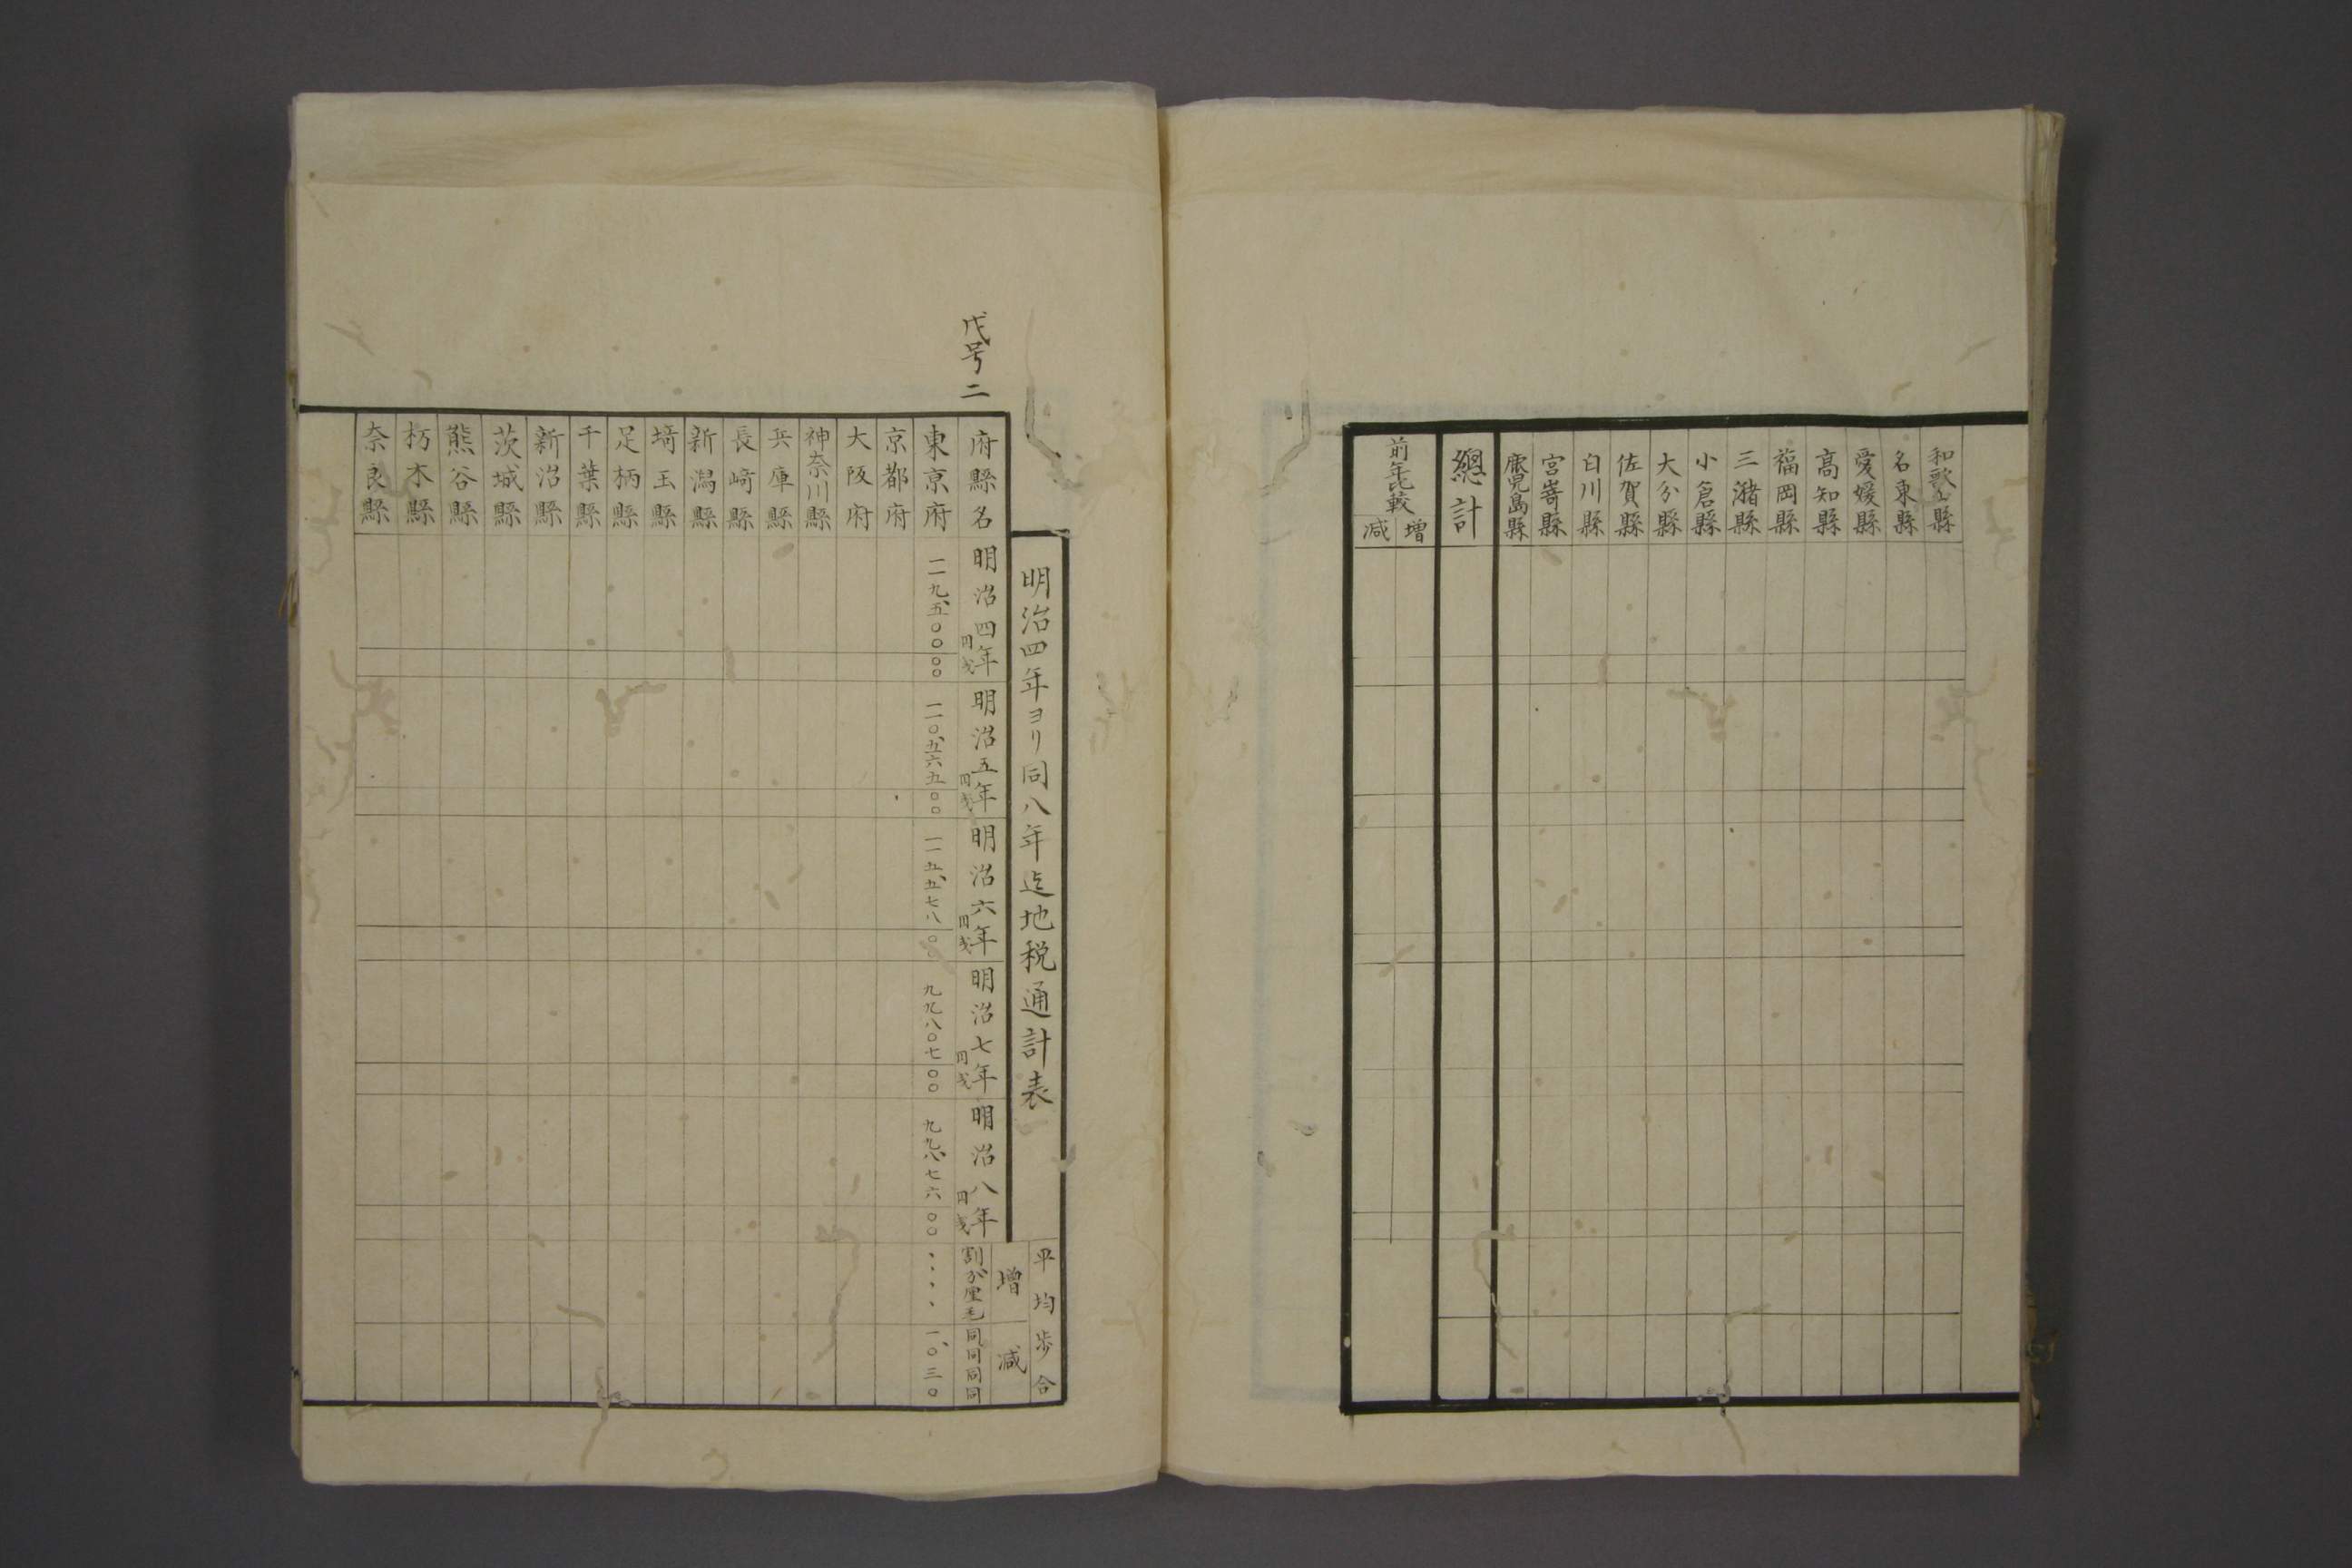 和歌山縣
名東縣
愛媛縣
高知縣
福岡縣
三潴縣
小倉縣
大分縣
佐賀縣
白川縣
宮嵜縣
鹿児島縣
總計
前年比較
增
減
戊号二
明治四年ヨリ同八年迄地税通計表
平均歩合
增
減
府縣名
明治四年
円戋
明治五年
円戋
明治六年
円戋
明治七年
円戋
明治八年
円戋
割分厘毛
同同同同
東京府
二九、五〇〇〇〇
二〇、五六五〇〇
九九八〇七〇〇
九九八、七六〇〇
一、〇三〇
京都府
大阪府
神奈川縣
兵庫縣
長﨑縣
新潟縣
埼玉縣
足柄縣
千葉縣
新沼縣
茨城縣
熊谷縣
栃木縣
奈良縣